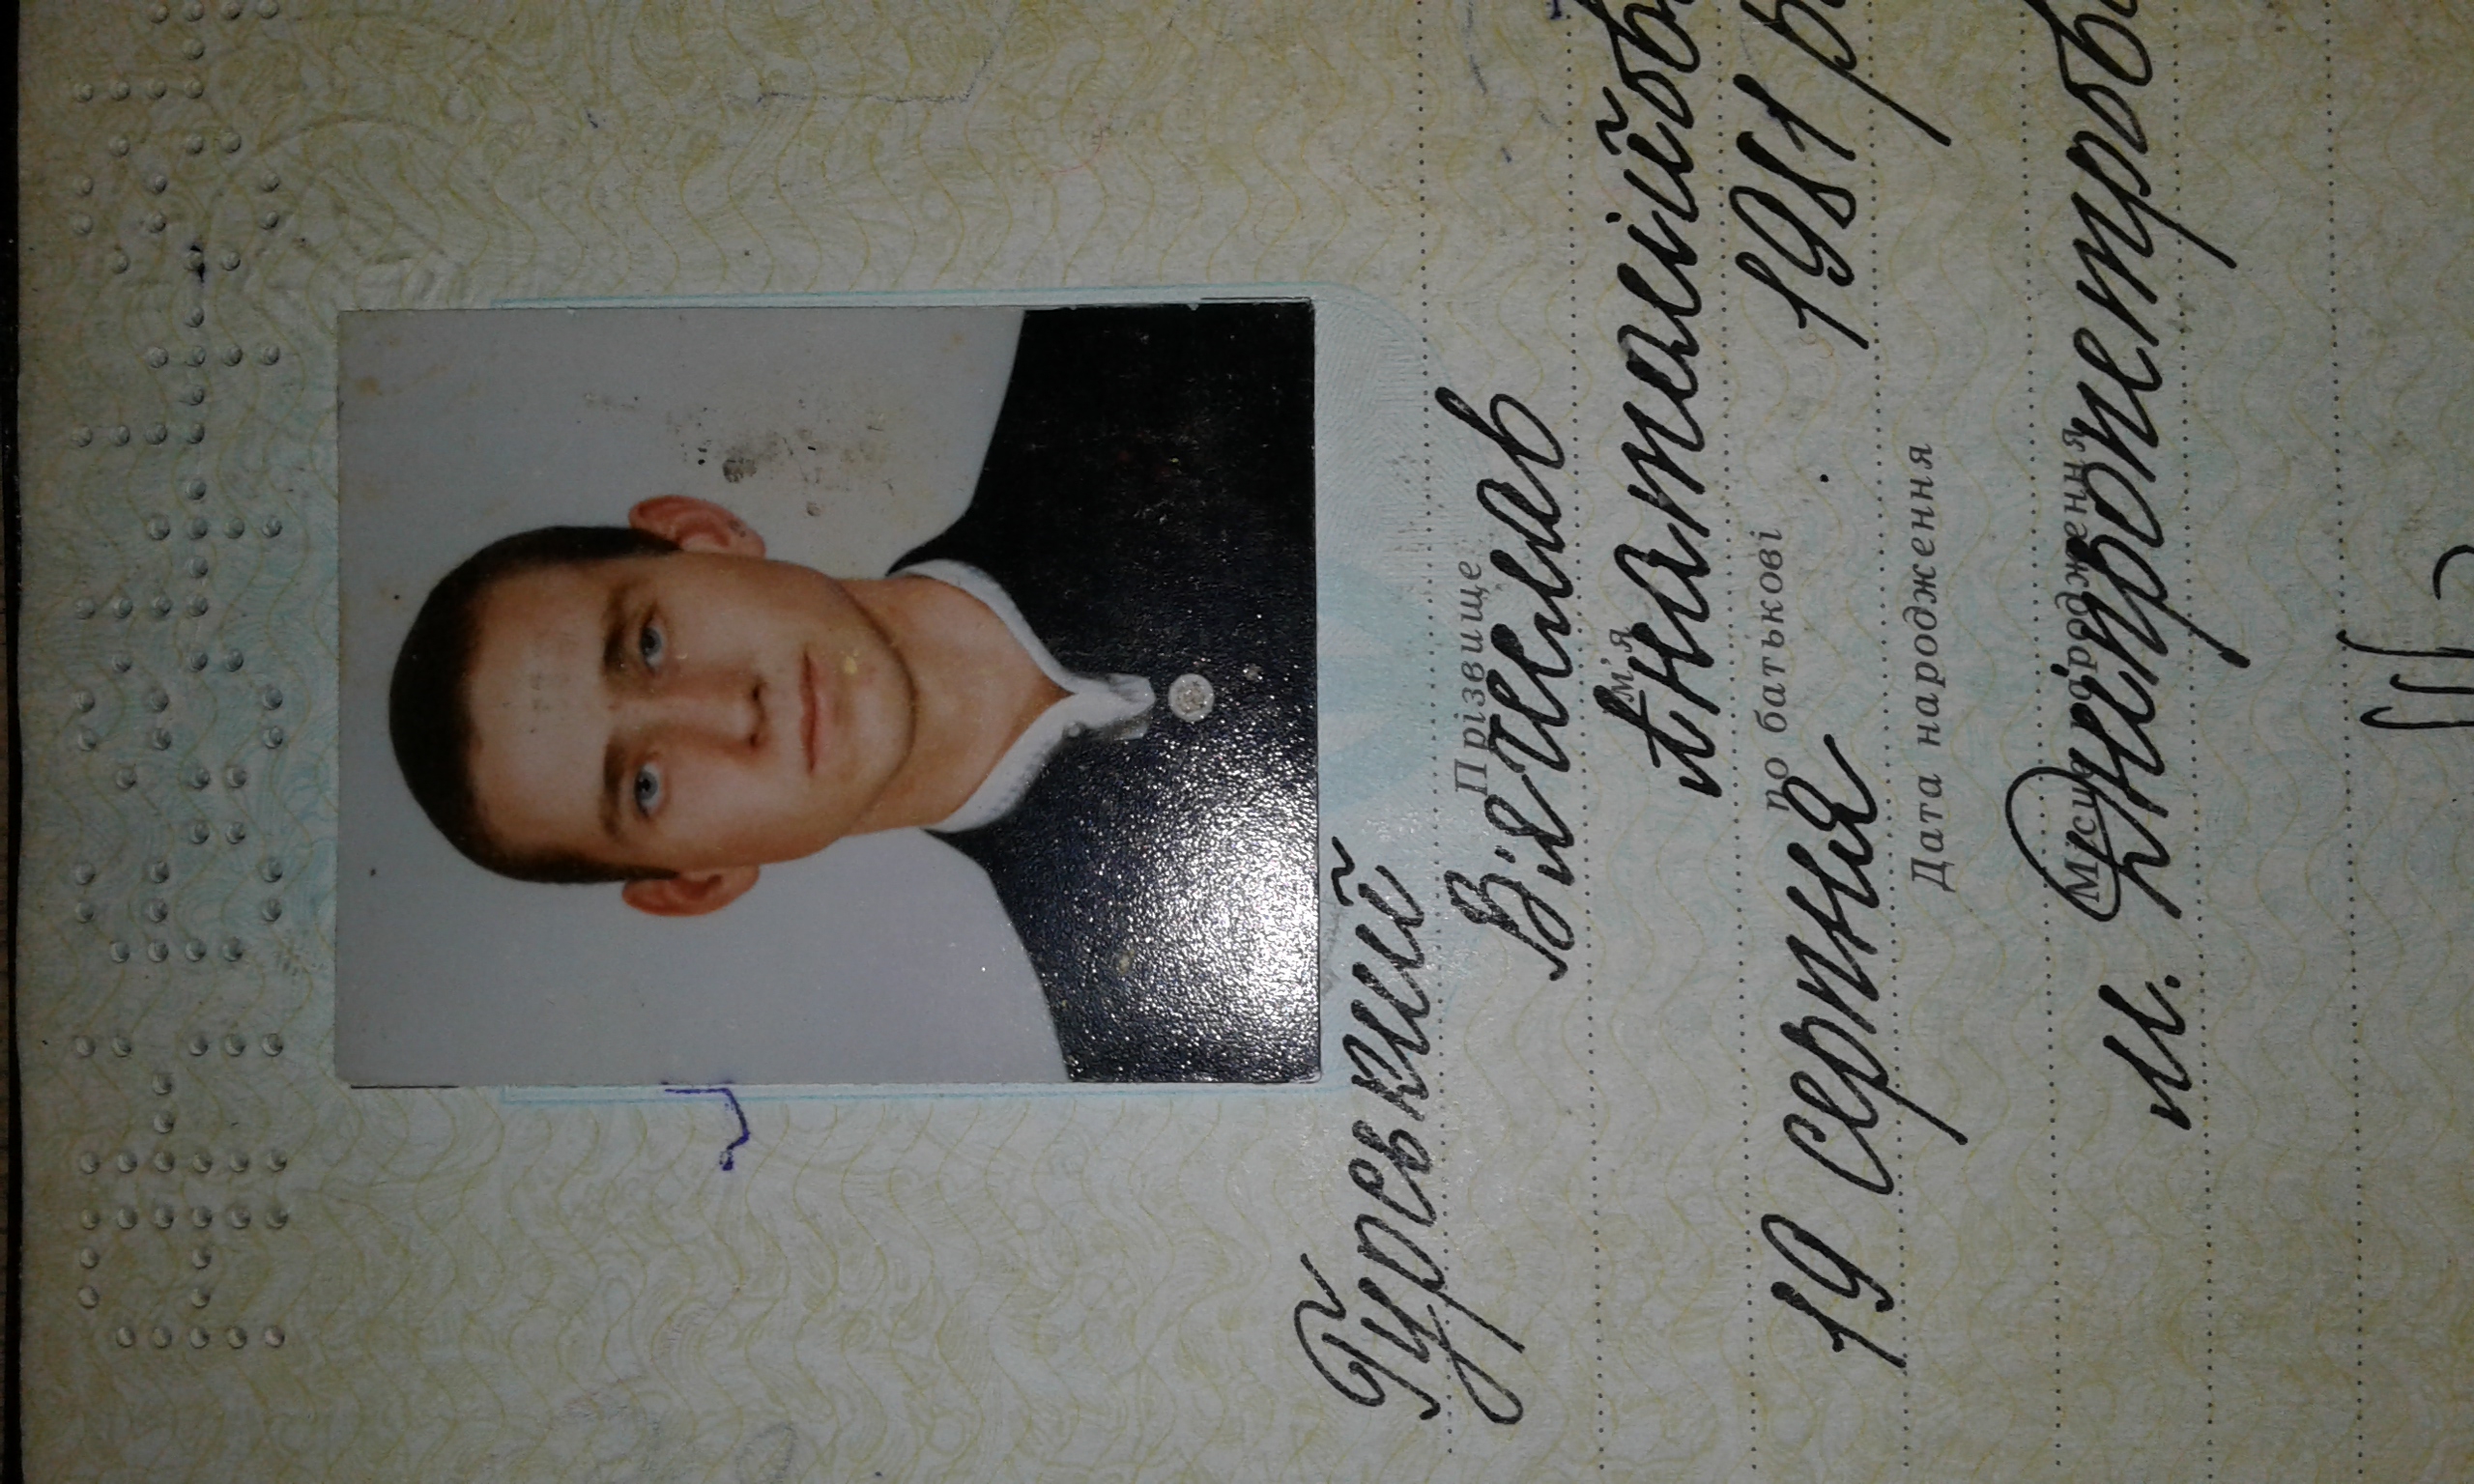 Прізвище
В'ячеслав
Ім'я
Анатолійов
по батькові
19 серпня 1981 р
Дата народження
м. Дніпропетровс
Місце народження